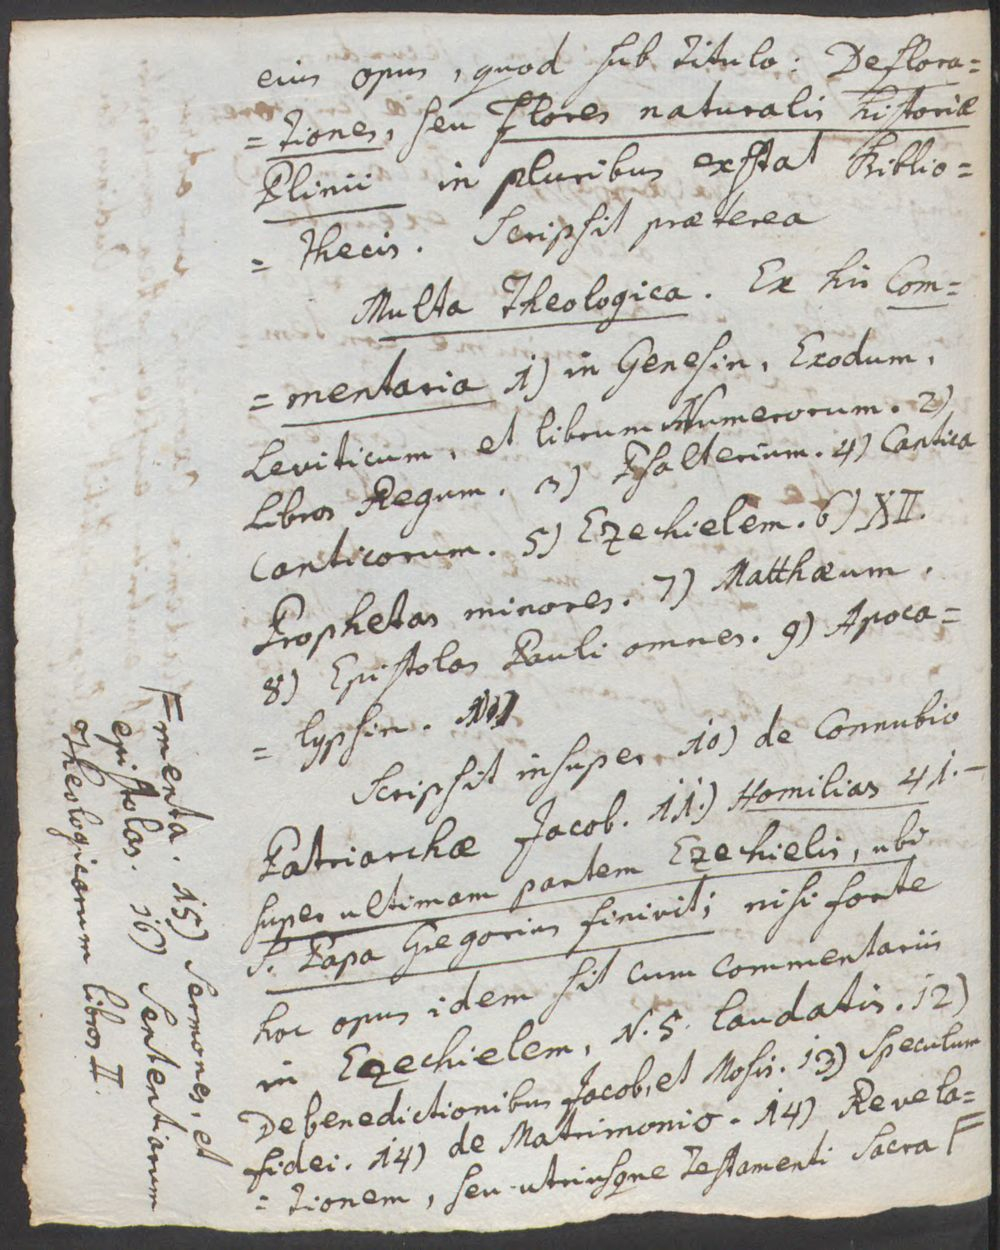 eius opus, quod sub titulo. Deflora=
= tiones, seu Flores naturalis historiæ
Plinii in pluribus exstat Biblio=
= thecis. Scripsit præterea
Multa Theologica. Ex his Com=
= mentaria 1) in Genesin, Exodum,
Leviticum, et librum Numerorum. 2)
Libros Regum. 3) Psalterium. 4) Cantica
Canticorum. 5) Ezechielem. 6) XII.
Prophetas minores. 7) Matthæum.
8) Epistolas Pauli omnes. 9) Apoca=
= lypsin.
Scripsit insuper 10) de Connubio
Patriarchæ Jacob. 11.) Homilias 41. –
super ultimam partem Ezechielis, ubi
S. Papa Gregorius finivit; nisi forte
hoc opus idem sit cum commentariis
in Ezechielem, N. 5. laudatis. 12)
De benedictionibus Jacob, et Mosis. 13) Speculum
fidei. 14) de Matrimonio. 14) Revela=
= tionem, seu utriusque Testamenti Sacra F
F menta. 15) Sermones, et
epistolas. 16) Sententiarum
Theologicarum libros II.